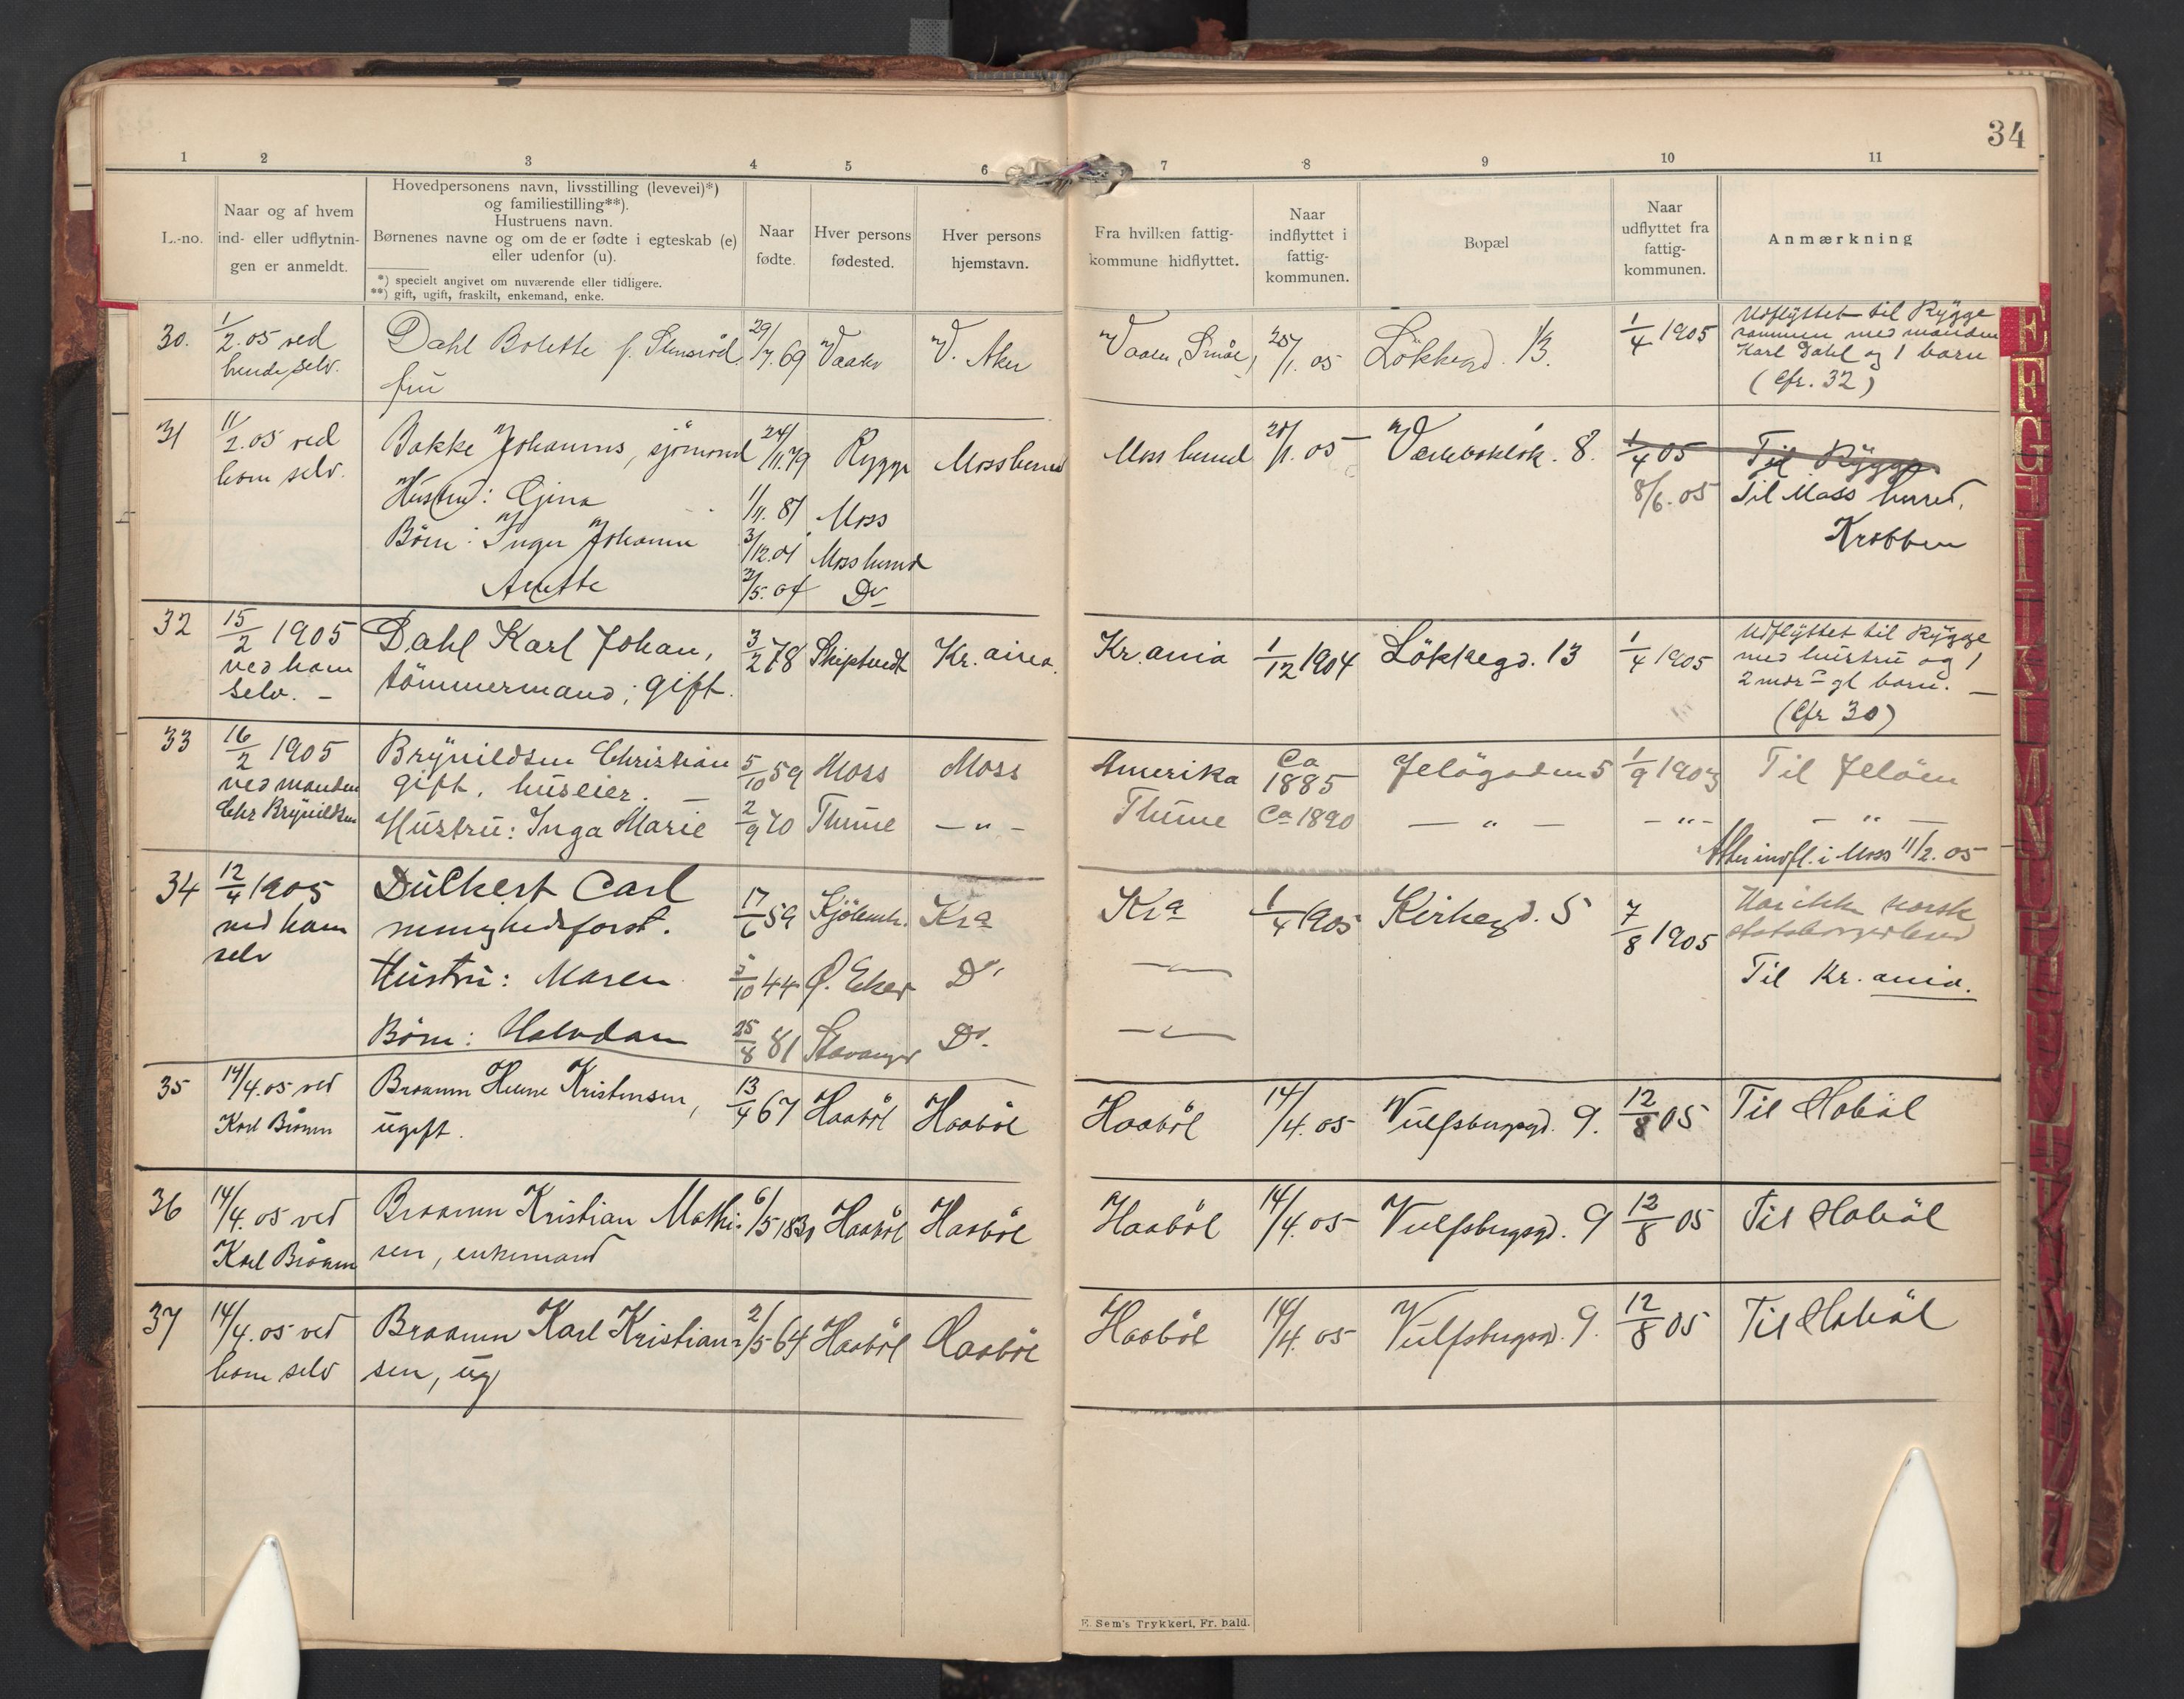 34
1 2 3 4 5 6 7 8 9 10 11
L.-no.
Naar og af hvem
ind- eller udflytnin-
gen er anmeldt.
Hovedpersonens navn, livsstilling (levevei)*)
og familiestilling**).
Hustruens navn.
Børnenes navne og om de er fødte i egteskab (e)
eller udenfor (u).
*) specielt angivet om nuværende eller tidligere.
**) gift, ugift, fraskilt, enkemand, enke.
Naar
fødte.
Hver persons
fødested.
Hver persons
hjemstavn.
Fra hvilken fattig-
kommune hidflyttet.
Naar
indflyttet i
fattig-
kommunen.
Bopæl
Naar
udflyttet fra
fattig-
kommunen.
Anmærkning
30. 1/2.05 ved Dahl Bolette f. 29/7.69 Vaaler V. Aker Vaaler 25/1.05 Løkkegd. 13. 1/4 1905 Udflyttet til Rygge
hende selv. fru sammen med manden
Karl Dahl og 1 barn
(cfr. 32)
31 11/2.05 ved Bakke Johannes, sjømand 24/11.79 Rygge Moss herred Moss herred 1.05 8. 1/4 05 Til Rygge
hom selv. Hustru: Gina 1/11.81 Moss 8/6.05 Til Moss herred,
Børn: Inger Johanne 3/12.01 Moss herred Krobben
Anette /5.04 Do
32 15/2 1905 Dahl Karl Johan, 3/2 78 Skiptvedt Kr.ania. Kr.ania 1/12 1904 Løkkegd. 13 1/4 1905 Udflyttet til Rygge
ved ham tömmermand; gift. med hustru og 1
selv. – 2 mdr gl barn. –
(Cfr 30)
33 16/2 1905 Brynildsen Christian 5/10 59 Moss Moss Amerika Ca 1885 Jeløgaden 5 1/9 190 Til Jeløen
ved manden gift, huseier. –
Chr Brynildsen Hustru: Inga Marie 2/9 70 Thune – " – Thune Ca 1890 – " – – " – – " –
Atter indfl. i Moss 11/2.05
34 12/4 1905 Dulkert Carl 17/6 59 Kjøbenh. Kra Kra 1/4 1905 Kirkegd. 5 7/8 1905 Har ikke norsk
ved ham menighedsforst. statsborgerbrev
selv Hustru: Maren /10 44 Ø. Eker Do Til Kr.ania.
Børn: Halvdan 25/8 81 Stavanger Do.
35 14/4.05 ved Braanen Kristensen, 13/4 67 Haabøl Haabøl Haabøl 14/4.05 Vulfsbergsgd. 9. 12/8 05 Til Hobøl
Karl ugift.
36 14/4.05 ved Braanen Kristian Mathi- 6/5 183 Haabøl Haabøl Haabøl 14/4.05 Vulfsbergsgd. 9 12/8 05 Til Hobøl
Karl sen, enkemand
37 14/4.05 ved Braanen Karl Kristian- 2/5 64 Haabøl Haabøl Haabøl 14/4.05 Vulfsbergsgd. 9. 12/8 05 Til Hobøl
hom selv sen, ug
E. Sem's Trykkeri, Fr.hald.